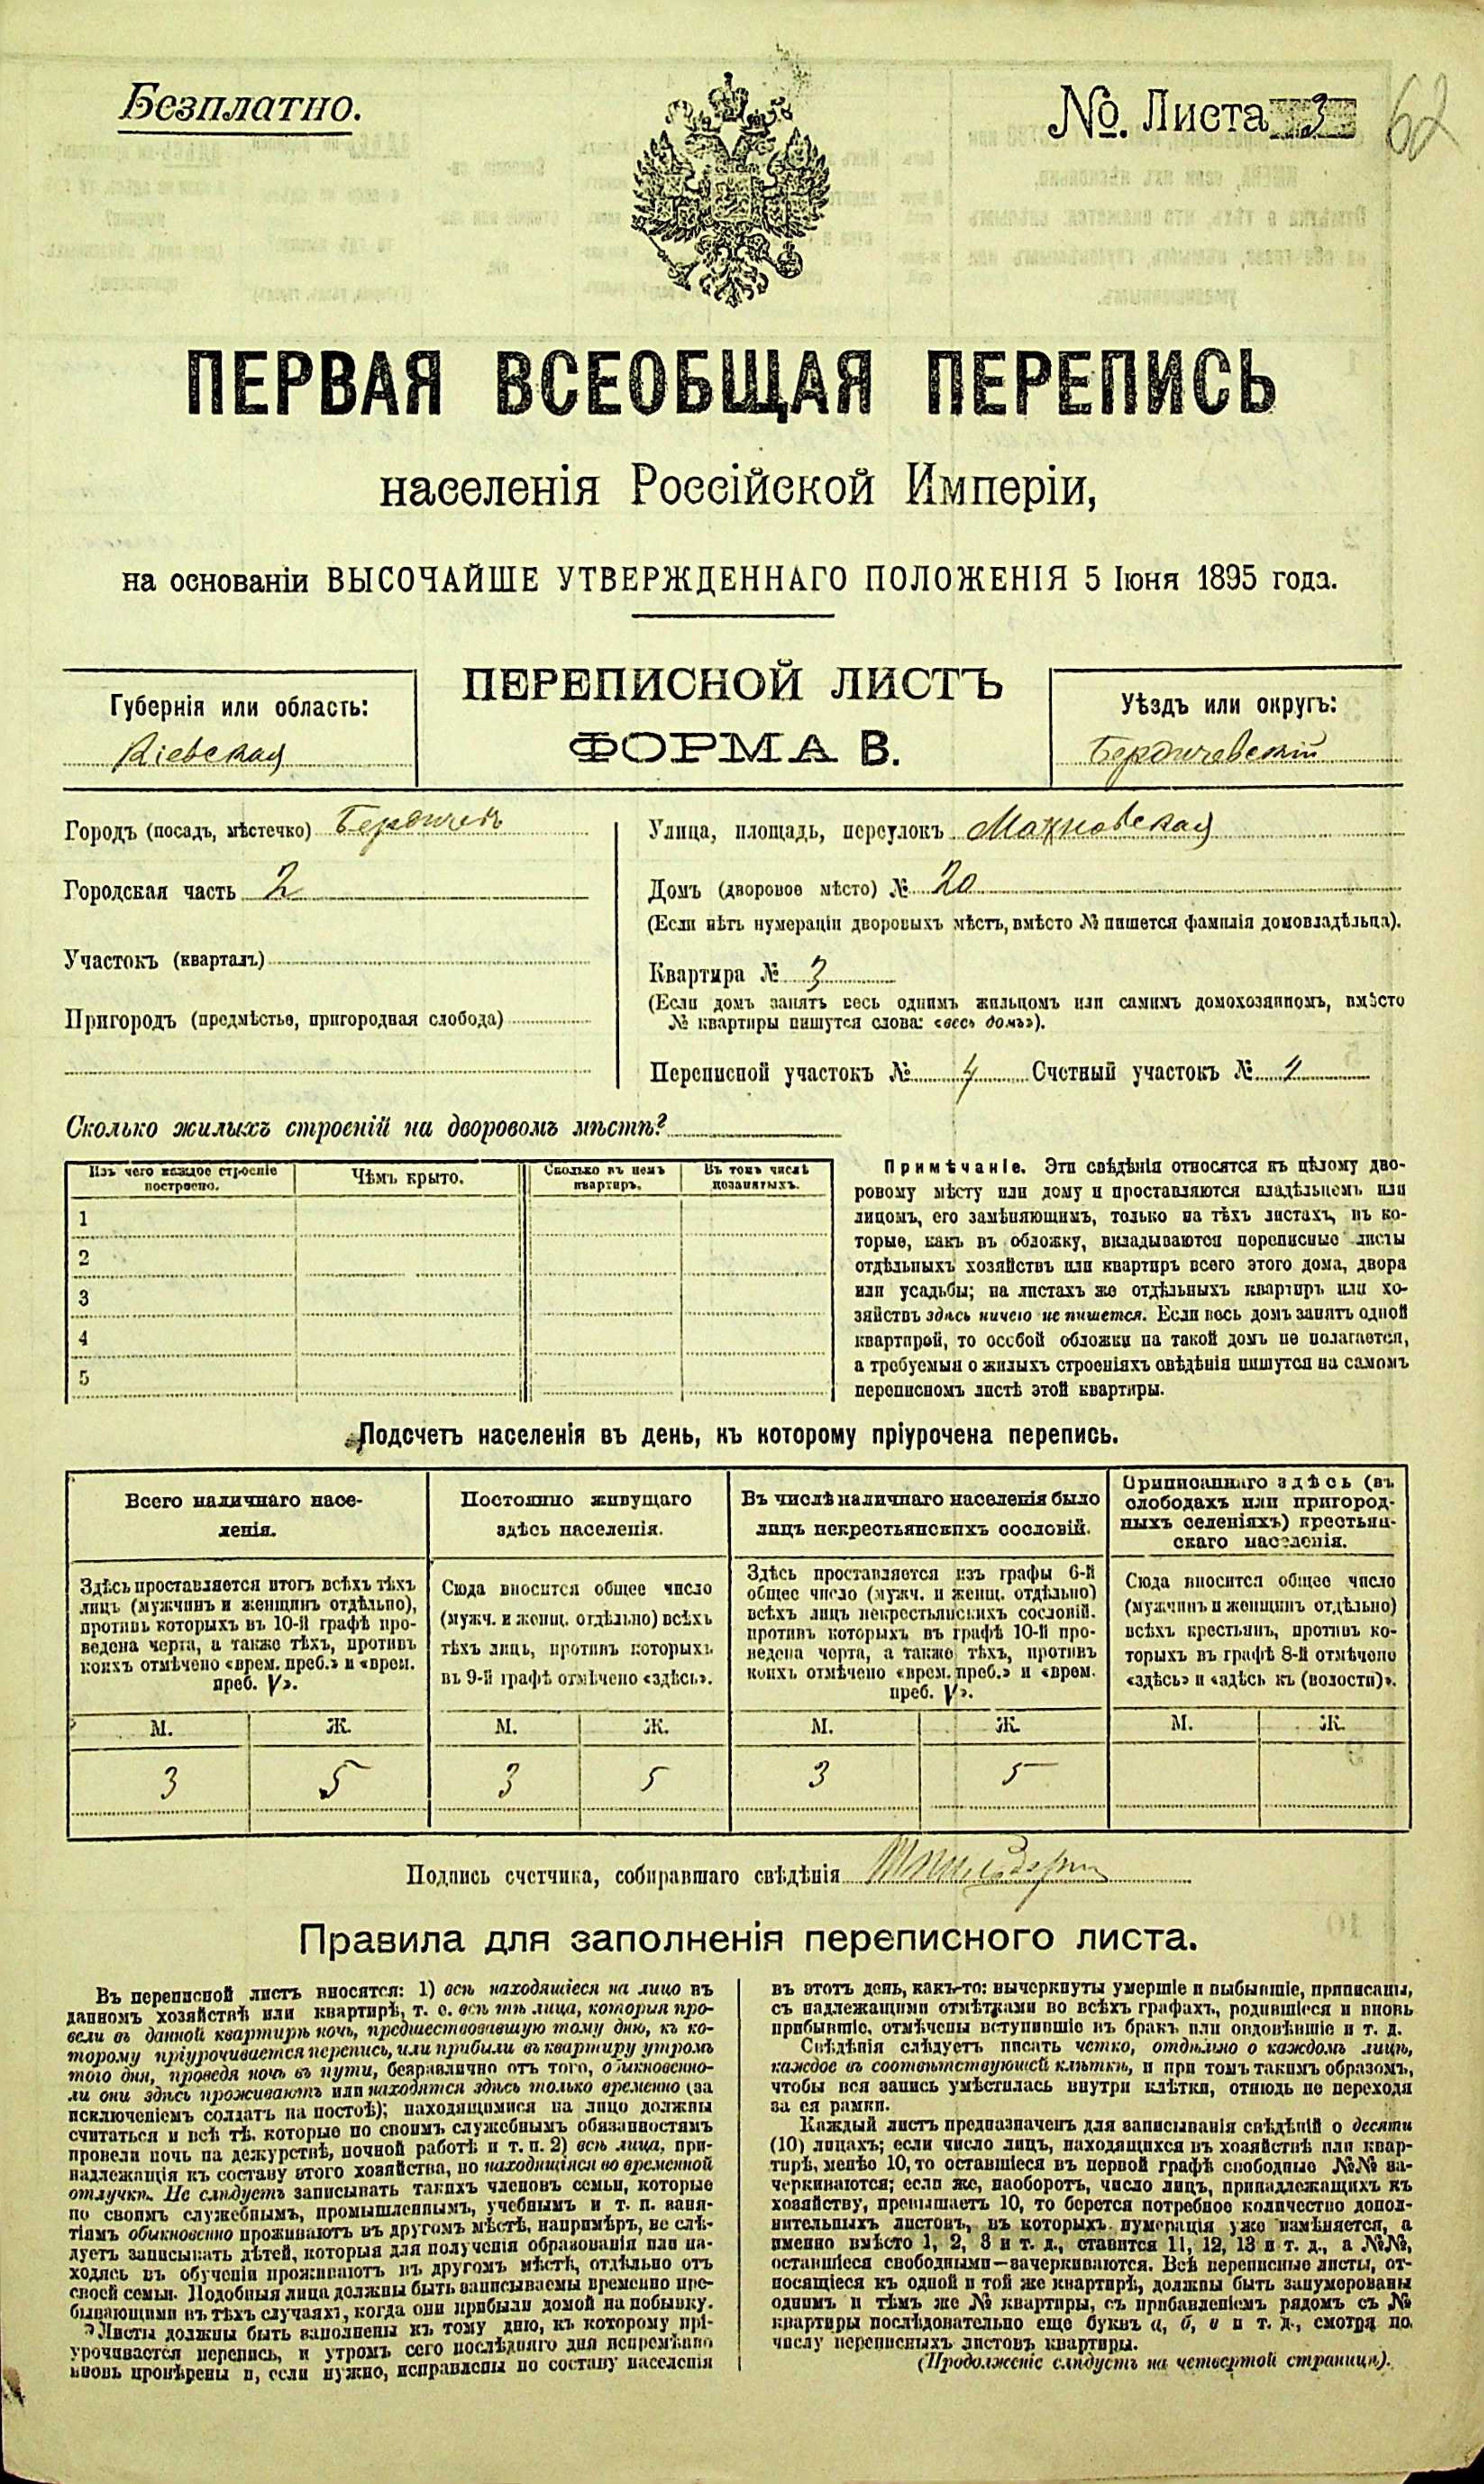 Безплатно.
№. Листа 3
62
ПЕРВАЯ ВСЕОБЩАЯ ПЕРЕПИСЬ
населенія Россійской Имперіи,
на основаніи ВЫСОЧАЙШЕ УТВЕРЖДЕННАГО ПОЛОЖЕНІЯ 5 Іюня 1895 года.
Губернія или область:
Кіевская
ПЕРЕПИСНОЙ ЛИСТЪ
ФОРМА В.
Уѣздъ или округъ:
Бердичевскій
Городъ (посадъ, мѣстечко) Бердичевъ
Городская часть 2
Участокъ (кварталъ)
Пригородъ (предмѣстье, пригородная слобода)
Улица, площадь, переулокъ Махновская
Домъ (дворовое мѣсто) № 20
(Если нѣтъ нумераціи дворовыхъ мѣстъ, вмѣсто № пишется фамилія домовладѣльца).
Квартира № 3
(Если домъ занятъ весь однимъ жильцомъ или самимъ домохозяиномъ, вмѣсто
№ квартиры пишутся слова: «весь домъ»).
Переписной участокъ № 4 Счетный участокъ № 1
Сколько жилыхъ строеній на дворовомъ мѣстѣ?
Изъ чего каждое строеніе
построено.
Чѣмъ крыто.
Сколько въ немъ
квартиръ.
Въ томъ числѣ
незанятыхъ.
1
2
3
4
5
Примѣчаніе. Эти свѣдѣнія относятся къ цѣлому дво-
ровому мѣсту или дому и проставляются владѣльцемъ или
лицомъ, его замѣняющимъ, только на тѣхъ листахъ, въ ко-
торые, какъ въ обложку, вкладываются переписные листы
отдѣльныхъ хозяйствъ или квартиръ всего этого дома, двора
или усадьбы; на листахъ же отдѣльныхъ квартиръ или хо-
зяйствъ здѣсь ничего не пишется. Если весь домъ занятъ одной
квартирой, то особой обложки на такой домъ не полагается,
а требуемыя о жилыхъ строеніяхъ свѣдѣнія пишутся на самомъ
переписномъ листѣ этой квартиры.
Подсчетъ населенія въ день, къ которому пріурочена перепись.
Всего наличнаго насе-
ленія.
Постоянно живущаго
здѣсь населенія.
Въ числѣ наличнаго населенія было
лицъ некрестьянскихъ сословій.
Приписаннаго здѣсь (въ
слободахъ или пригород-
ныхъ селеніяхъ) крестьян-
скаго населенія.
Здѣсь проставляется итогъ всѣхъ тѣхъ
лицъ (мужчинъ и женщинъ отдѣльно),
противъ которыхъ въ 10-й графѣ про-
ведена черта, а также тѣхъ, противъ
коихъ отмѣчено «врем. преб.» и «врем.
преб. V».
Сюда вносится общее число
(мужч. и женщ. отдѣльно) всѣхъ
тѣхъ лицъ, противъ которыхъ
въ 9-й графѣ отмѣчено «здѣсь».
Здѣсь проставляется изъ графы 6-й
общее число (мужч. и женщ. отдѣльно)
всѣхъ лицъ некрестьянскихъ сословій.
противъ которыхъ въ графѣ 10-й про-
ведена черта, а также тѣхъ, противъ
коихъ отмѣчено «врем. преб.» и «врем.
преб. V».
Сюда вносится общее число
(мужчинъ и женщинъ отдѣльно)
всѣхъ крестьянъ, противъ ко-
торыхъ въ графѣ 8-й отмѣчено
«здѣсь» и «здѣсь къ (волости)».
М. Ж. М. Ж. М. Ж. М. Ж.
3 5 3 5 3 5
Подпись счетчика, собиравшаго свѣдѣнія
Правила для заполненія переписного листа.
Въ переписной листъ вносятся: 1) всѣ находящіеся на лицо въ
данномъ хозяйствѣ или квартирѣ, т. е. всѣ тѣ лица, которыя про-
вели въ данной квартирѣ ночь, предшествовавшую тому дню, къ ко-
торому пріурочивается перепись, или прибыли въ квартиру утромъ
того дня, проведя ночь въ пути, безразлично отъ того, обыкновенно-
ли они здѣсь проживаютъ или находятся здѣсь только временно (за
исключеніемъ солдатъ на постоѣ); находящимися на лицо должны
считаться и всѣ тѣ, которые по своимъ служебнымъ обязанностямъ
провели ночь на дежурствѣ, ночной работѣ и т. п. 2) всѣ лица, при-
надлежащія къ составу этого хозяйства, но находящіяся во временной
отлучкѣ. Не слѣдуетъ записывать такихъ членовъ семьи, которые
по своимъ служебнымъ, промышленнымъ, учебнымъ и т. п. заня-
тіямъ обыкновенно проживаютъ въ другомъ мѣстѣ, напримѣръ, не слѣ-
дуетъ записывать дѣтей, которыя для полученія образованія или на-
ходясь въ обученіи проживаютъ въ другомъ мѣстѣ, отдѣльно отъ
своей семьи. Подобныя лица должны быть записываемы временно пре-
бывающими въ тѣхъ случаяхъ, когда они прибыли домой на побывку.
Листы должны быть заполнены къ тому дню, къ которому прі-
урочивается перепись, и утромъ сего послѣдняго дня непремѣнно
вновь провѣрены и, если нужно, исправлены по составу населенія
въ этотъ день, какъ-то: вычеркнуты умершіе и выбывшіе, приписаны,
съ надлежащими отмѣтками во всѣхъ графахъ, родившіеся и вновь
прибывшіе, отмѣчены вступившіе въ бракъ или овдовѣвшіе и т. д.
Свѣдѣнія слѣдуетъ писать четко, отдѣльно о каждомъ лицѣ,
каждое въ соотвѣтствующей клѣткѣ, и при томъ такимъ образомъ,
чтобы вся запись умѣстилась внутри клѣтки, отнюдь не переходя
за ея рамки.
Каждый листъ предназначенъ для записыванія свѣдѣній о десяти
(10) лицахъ; если число лицъ, находящихся въ хозяйствѣ или квар-
тирѣ, менѣе 10, то оставшіеся въ первой графѣ свободные №№ за-
черкиваются; если же, наоборотъ, число лицъ, принадлежащихъ къ
хозяйству, превышаетъ 10, то берется потребное количество допол-
нительныхъ листовъ, въ которыхъ нумерація уже измѣняется, а
именно вмѣсто 1, 2, 3 и т. д., ставится 11, 12, 13 и т. д., а №№,
оставшіеся свободными—зачеркиваются. Всѣ переписные листы, от-
носящіеся къ одной и той же квартирѣ, должны быть занумерованы
однимъ и тѣмъ же № квартиры, съ прибавленіемъ рядомъ съ №
квартиры послѣдовательно еще буквъ а, б, в и т. д., смотря по
числу переписныхъ листовъ квартиры.
(Продолженіе слѣдуетъ на четвертой страницѣ).